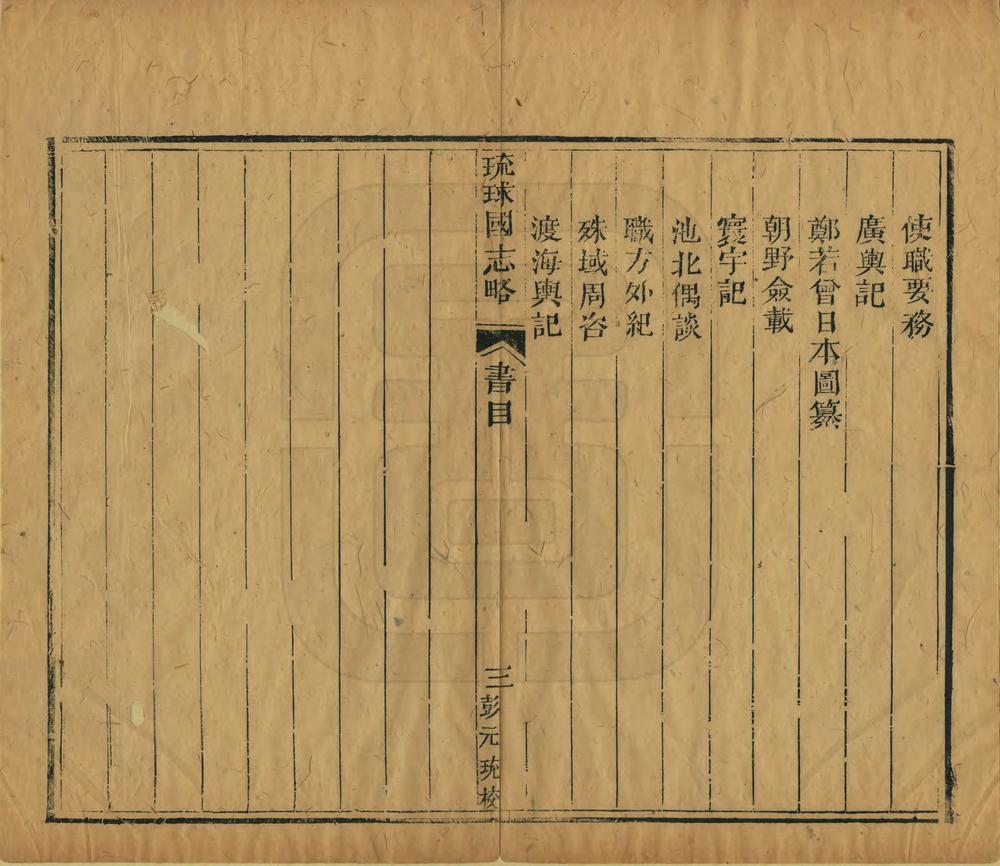 使職要務
廣輿記
鄭若曾日本圖纂
朝野僉載
寰宇記
池北偶談
職方外紀
殊域周咨
渡海輿記
琉球國志略
書目
三
彭元珫校